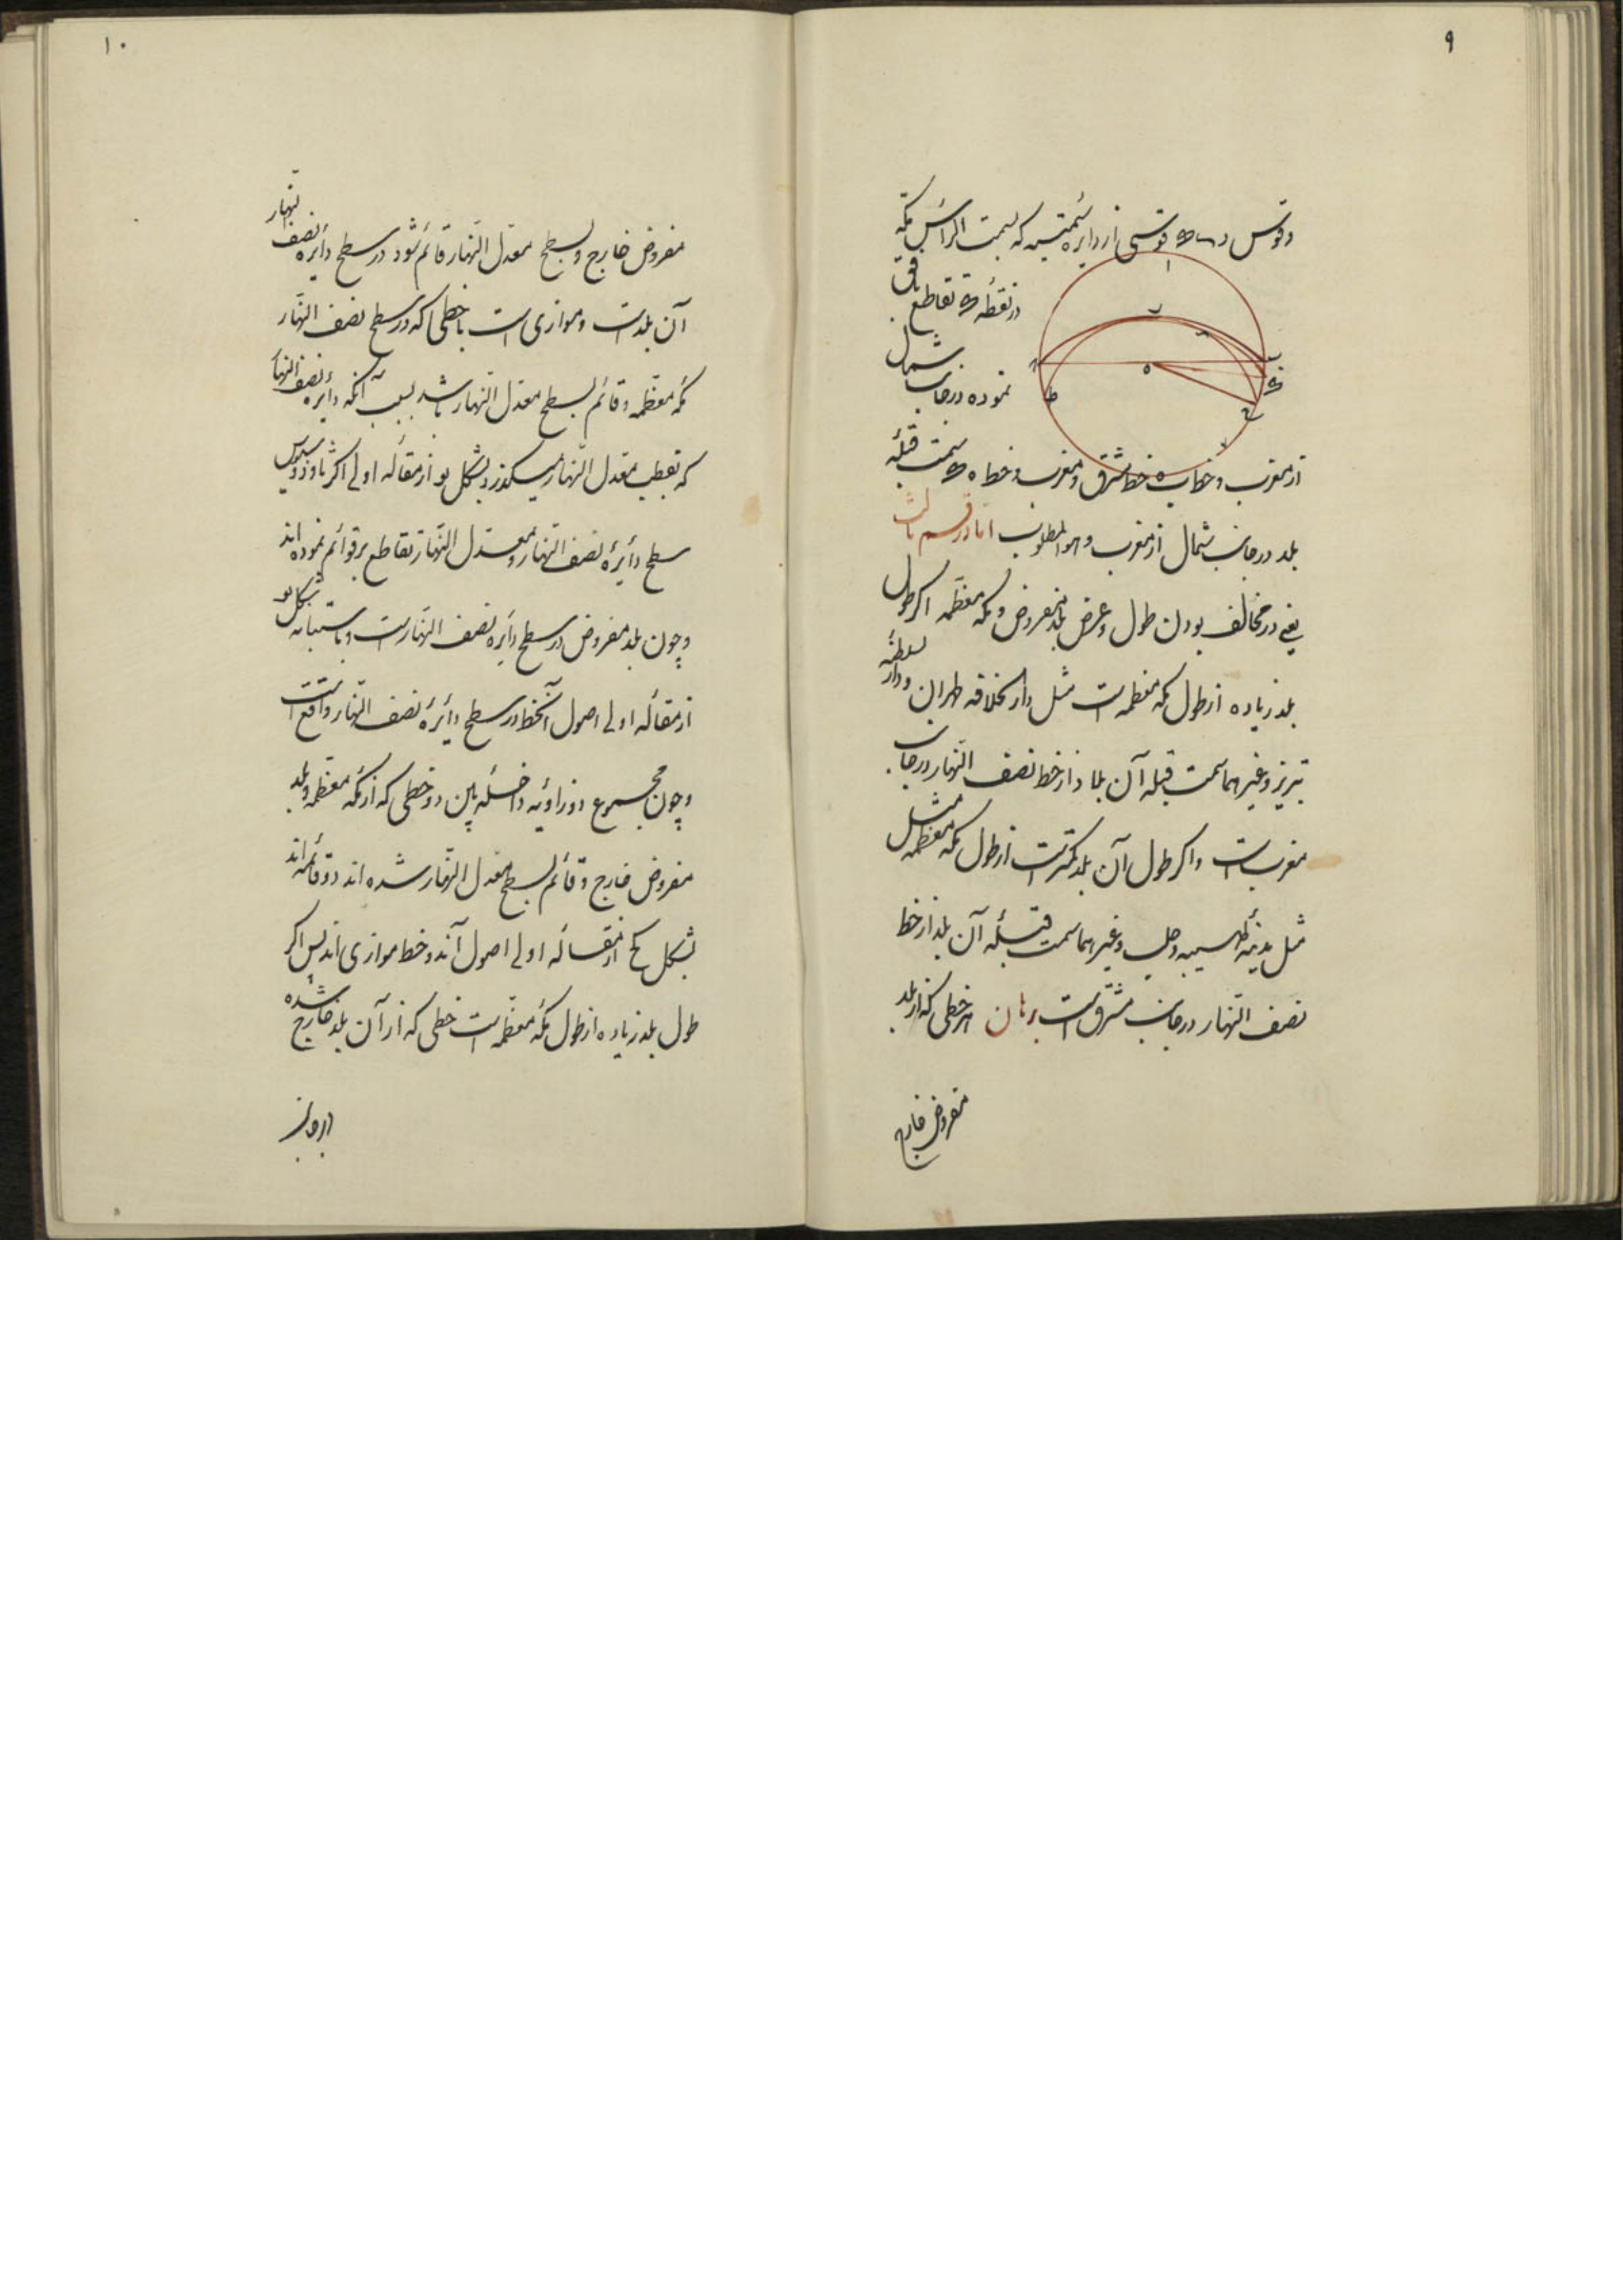 ۹
وقوس د س ق قوسی از دایره سمتیه که بسمت الراس مکه
در نقطه ق تقاطع بافق
نموده در جانب شمال
از مغرب و خط ب ه خط مشرق و مغرب و خط ه ق سمت قبله
بلد در جانب شمال از مغرب و هو المطلوب اما در قسم ثالث
یعنی در مخالف بودن طول و عرض بلد مفروض و مکه معظمه اگر طول
بلد زیاده از طول مکه معظمه است مثل دار الخلافه طهران و دار السلطنه
تبریز و غیرهما سمت قبله آن بلاد از خط نصف النهار در جانب
مغرب است و اگر طول آن بلد کمتر است از طول مکه معظمه مثل
مثل مدینه طیبه و حلب و غیرهما سمت قبله آن بلد از خط
نصف النهار در جانب مشرق است برهان هر خطی که از بلد
مفروض خارج
۱۰
مفروض خارج و بسطح معدل النهار قائم شود در سطح دایره نصف النهار
آن بلد است و موازی است با خطی که در سطح نصف النهار
مکه معظمه و قائم بسطح معدل النهار باشد بسبب آنکه دایره نصف النهار
که بقطب معدل النهار میگذرد بشکل یو از مقاله اولی اکر ثاوذوسیوس
سطح دایرهٔ نصف النهار و معدل النهار تقاطع بر قوائم نموده اند
و چون بلد مفروض در سطح دایره نصف النهار است و باستبانه شکل یو
از مقاله اولی اصول آنخط در سطح دایرهٔ نصف النهار واقع است
و چون مجموع دو زاویه داخله بین دو خطی که از مکه معظمه و بلد
مفروض خارج و قائم بسطح معدل النهار شده اند دو قائمه اند
بشکل کح از مقاله اولی اصول آن دو خط موازی اند پس اگر
طول بلد زیاده از طول مکه معظمه است خطی که از آن بلد خارج شده
در جانب